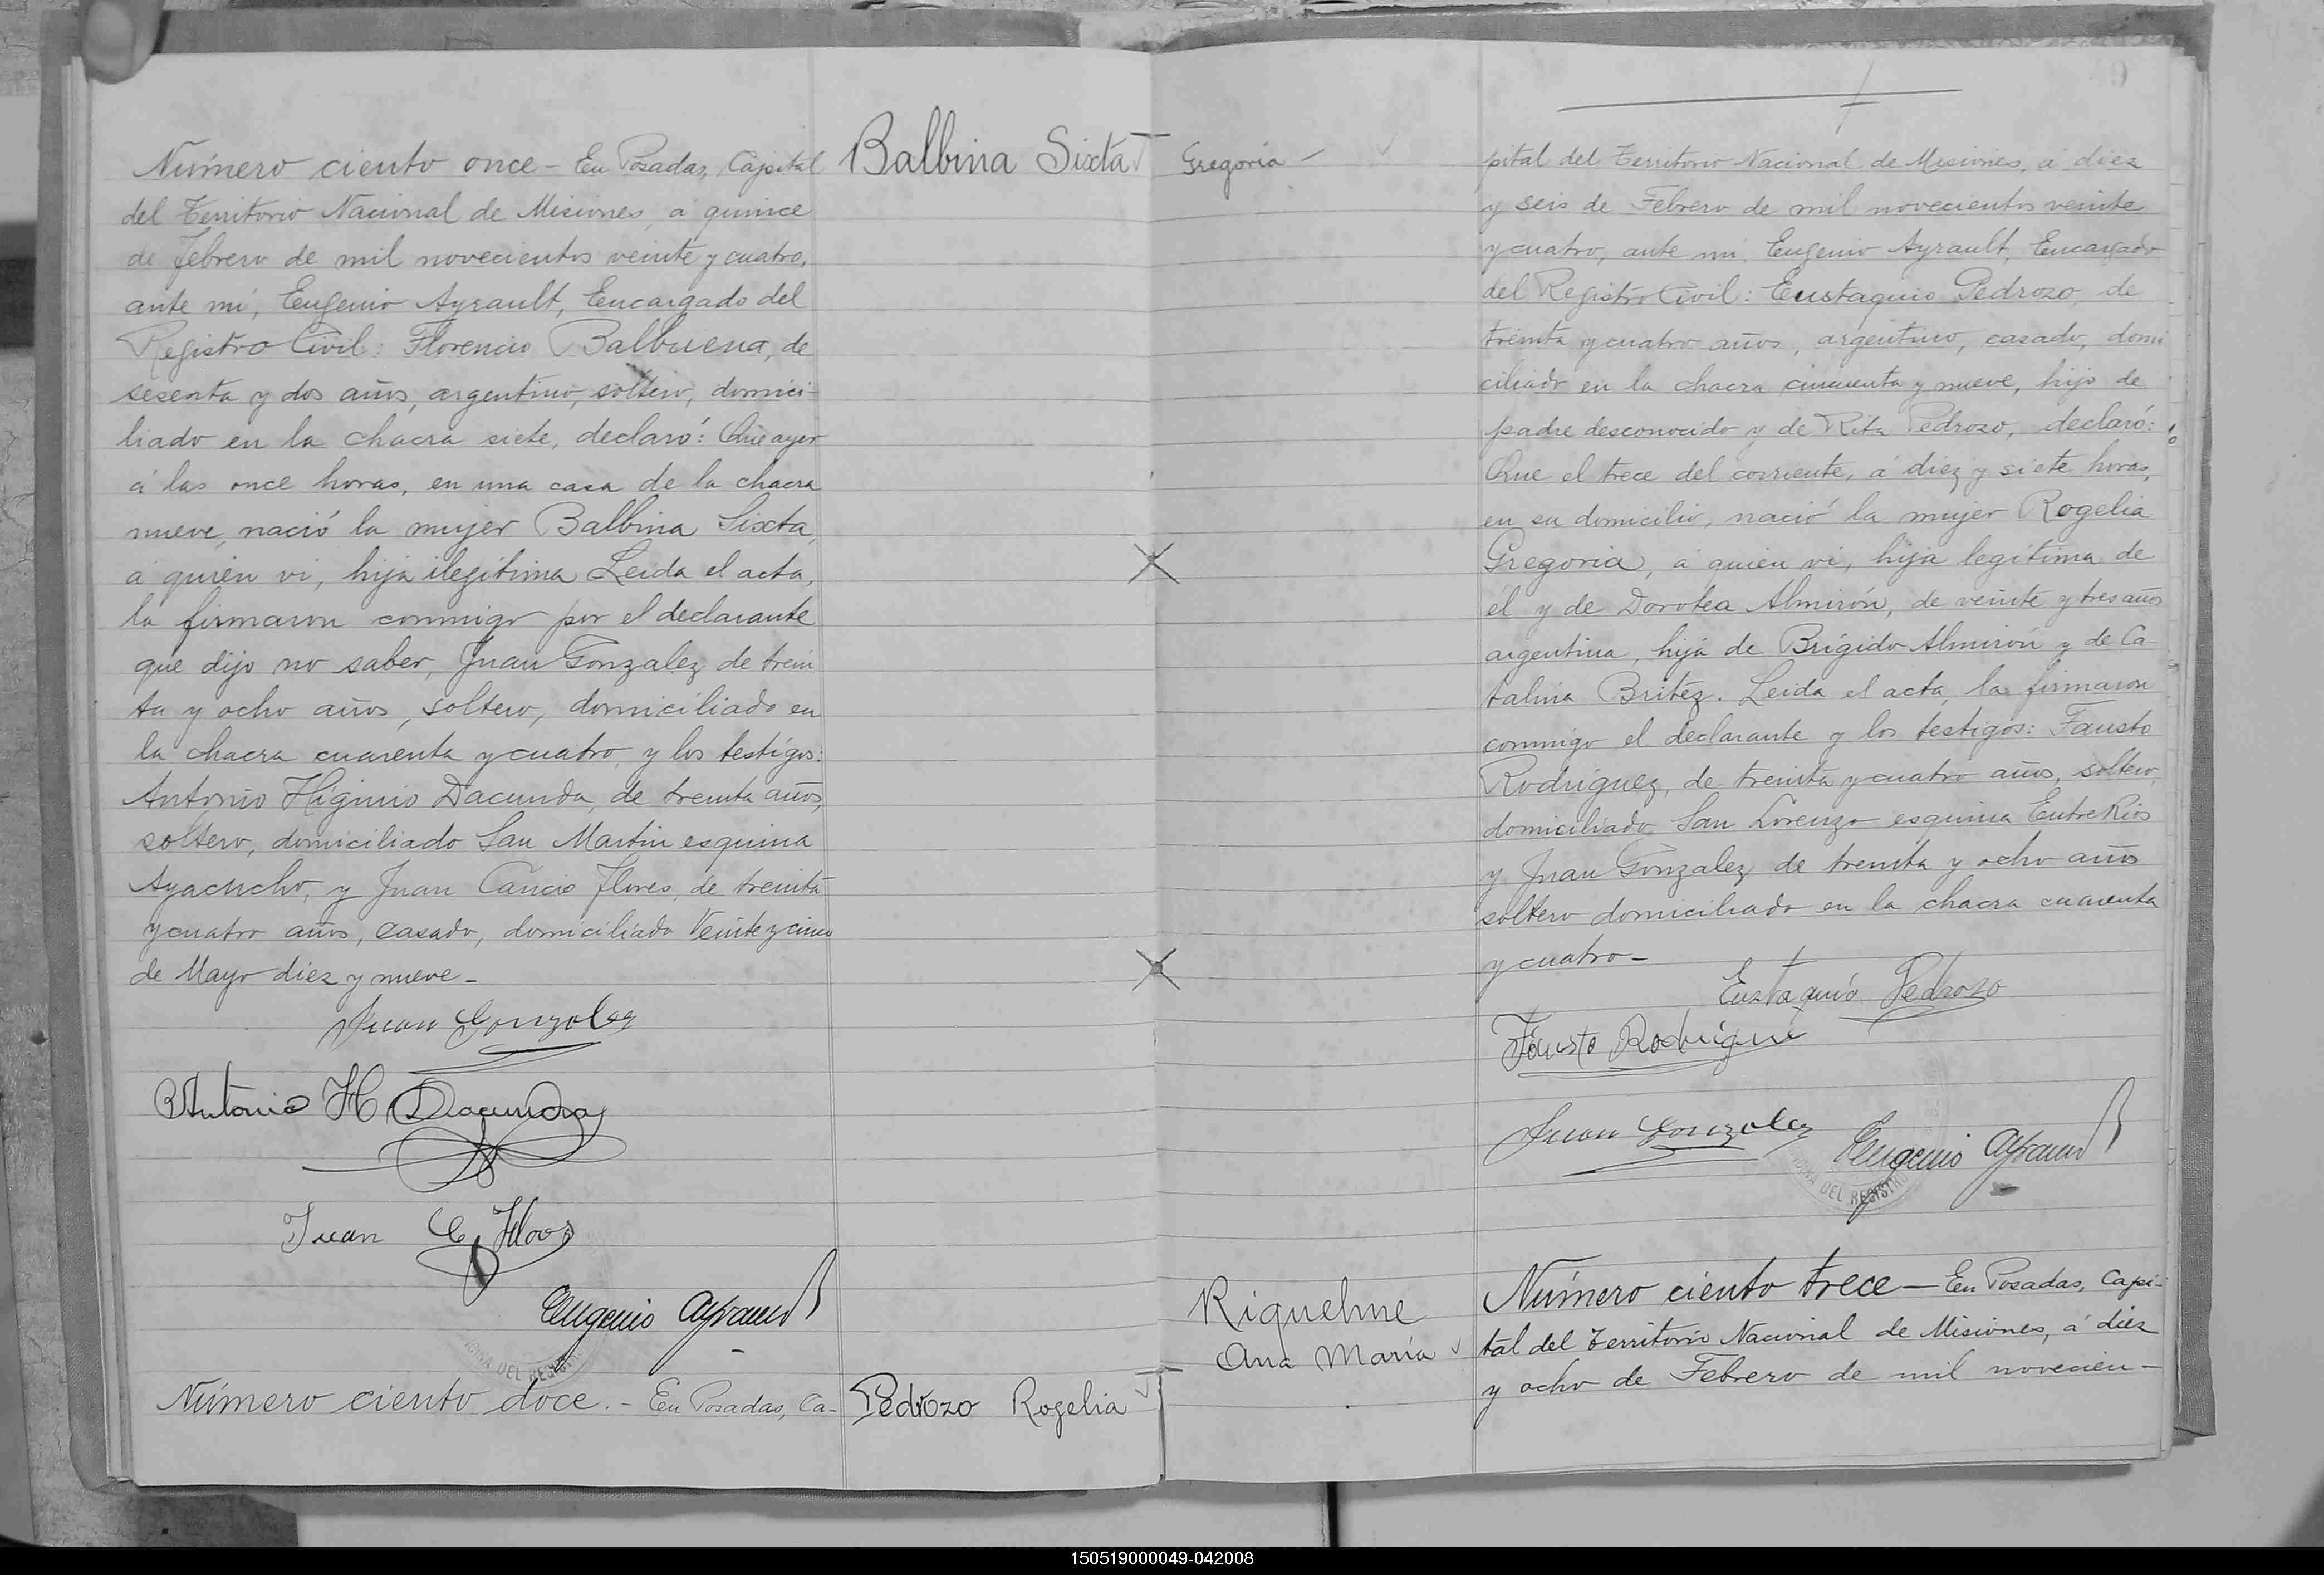 Balbina Sixta
Número ciento once - En Posadas, Capital
del Territorio Nacional de Misiones, á quince
de febrero de mil novecientos veinte y cuatro,
ante mí, Eugenio Ayrault, Encargado del
Registro Civil: Florencio Balbuena, de
sesenta y dos años, argentino, soltero, domici-
liado en la chacra siete, declaró: Que ayer
á las once horas, en una casa de la chacra
nueve, nació la mujer Balbina Sixta,
á quien vi, hija ilegítima Leida el acta,
la firmaron conmigo por el declarante
que dijo no saber, Juan Gonzalez, de trein
ta y ocho años, soltero, domiciliado en
la chacra cuarenta y cuatro, y los testigos:
Antonio Higinio Dacunda, de treinta años,
soltero, domiciliado San Martin esquina
Ayacucho, y Juan Cancio Flores, de treinta
y cuatro años, casado, domiciliado Veinte y cinco
de Mayo diez y nueve -
Juan Gonzalez
Antonio H Dacunda
Juan C
Eugenio Ayrault
DEL REGIST
Pedrozo Rogelia
Número ciento doce. - En Posadas, Ca-
Gregoria -
pital del Territorio Nacional de Misiones, á diez
y seis de Febrero de mil novecientos veinte
y cuatro, ante mí, Eugenio Ayrault, Encargado
del Registro Civil: Eustaquio Pedrozo, de
treinta y cuatro años, argentino, casado, domi
ciliado en la chacra cincuenta y nueve, hijo de
padre desconocido y de Rita Pedrozo, declaró:
Que el trece del corriente, á diez y siete horas,
en su domicilio, nació la mujer Rogelia
Gregoria, á quien vi, hija legítima de
él y de Dorotea Almirón, de veinte y tres años
argentina, hija de Brígido Almirón y de Ca
talina Britéz. Leida el acta, la firmaron
conmigo el declarante y los testigos: Fausto
Rodríguez, de treinta y cuatro años, soltero,
domiciliado San Lorenzo esquina Entre Rios
y Juan Gonzalez de treinta y ocho años
soltero domiciliado en la chacra cuarenta
y cuatro -
Eustaquio Pedrozo
Fausto Rodrigue
Juan Gonzalez
Eugenio Ayrault
DEL REGISTRO
Riquelme
Ana María
Número ciento trece - En Posadas, Capi-
tal del Territorio Nacional de Misiones, á diez
y ocho de Febrero de mil novecien-
150519000049-042008